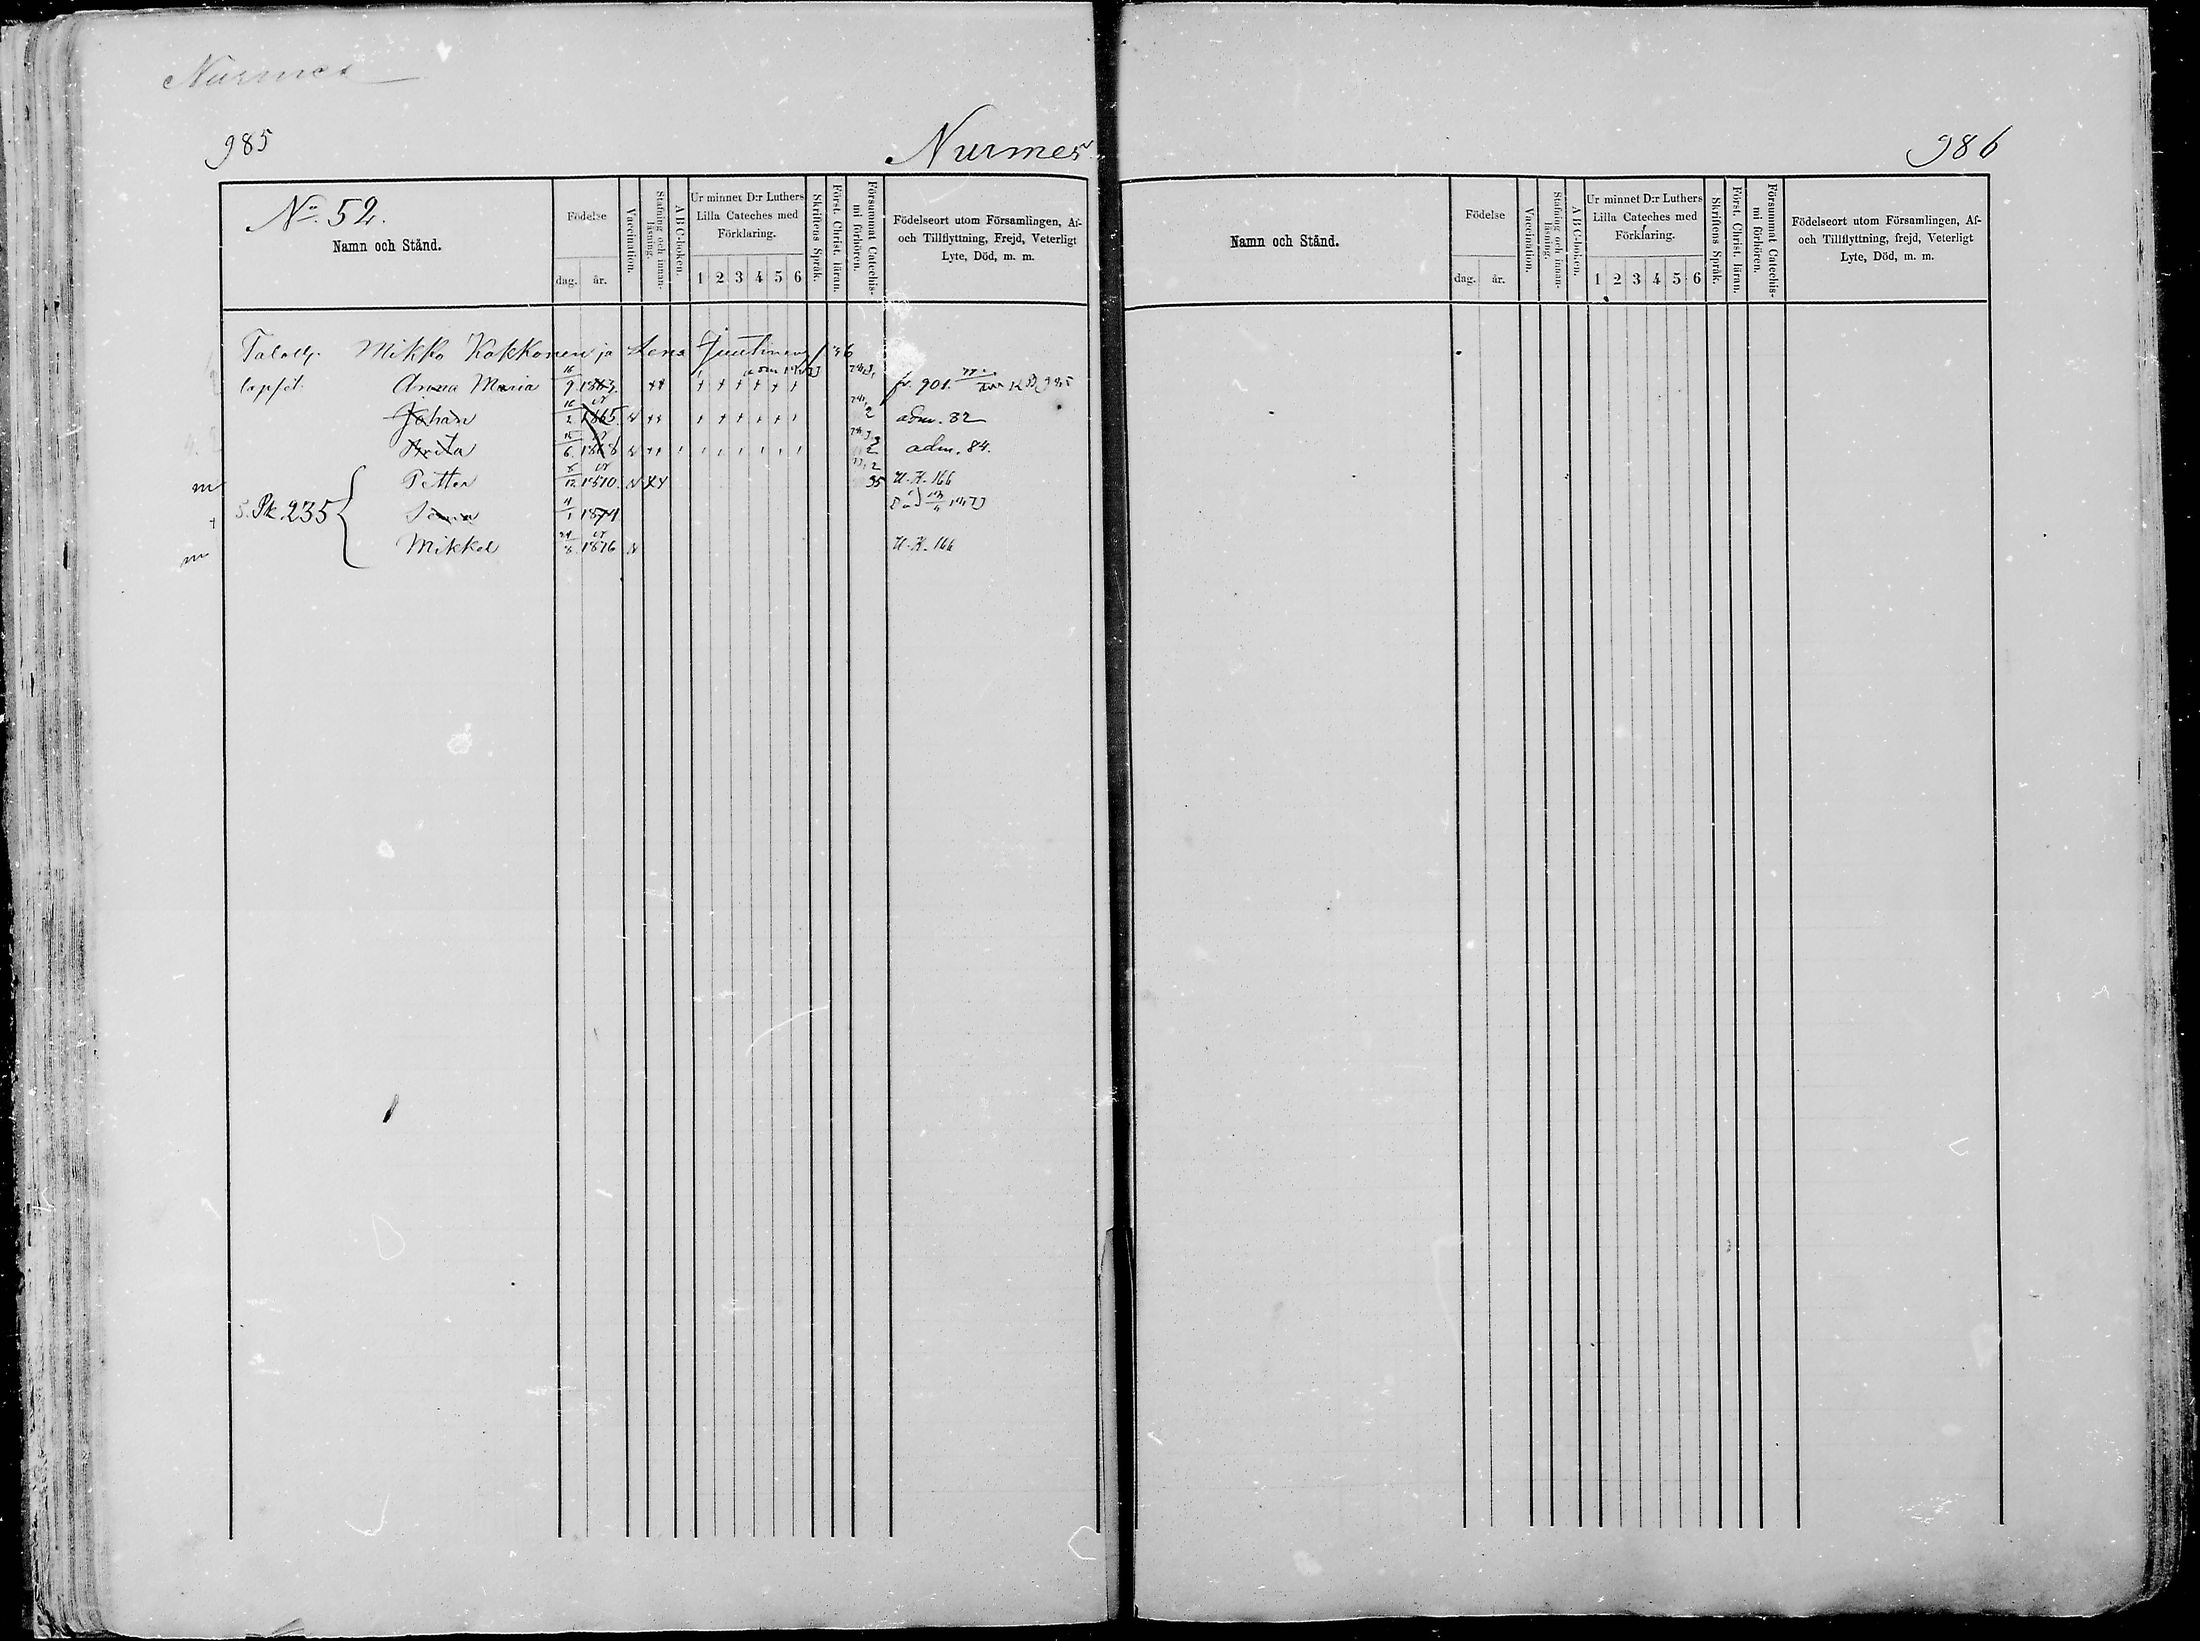 Nurmes
985
Nurmes
No. 52.
Namn och Stånd.
Födelse
dag.
år.
Vaccination.
Stafning och innan-
läsning.
A B C-boken.
Ur minnet D:r Luthers
Lilla Cateches med
Förklaring.
1 2 3 4 5 6
Skriftens Språk.
Först. Christ. läran.
Försummat Catechis-
mi förhören.
Födelseort utom Församlingen, Af-
och Tillflyttning, Frejd, Veterligt
Lyte, Död, m. m.
Mikko Kokkonen ja Lena Juutinen
lapset Anna Maria 16/9 1863 fr. 901.
Johan 16/2 1865 adm. 82
Brita 15/6 1868 adm. 84.
m Petter 8/12 1870 35 U. K. 166
S. Pk. 235
11/1 1874
m Mikkel 24/8 1876 U. K. 166
986
Namn och Stånd.
Födelse
dag.
år.
Vaccination.
Stafning och innan-
läsning.
A B C-boken.
Ur minnet D:r Luthers
Lilla Cateches med
Förklaring.
1 2 3 4 5 6
Skriftens Språk.
Först. Christ. läran.
Försummat Catechis-
mi förhören.
Födelseort utom Församlingen, Af-
och Tillflyttning, frejd, Veterligt
Lyte, Död, m. m.